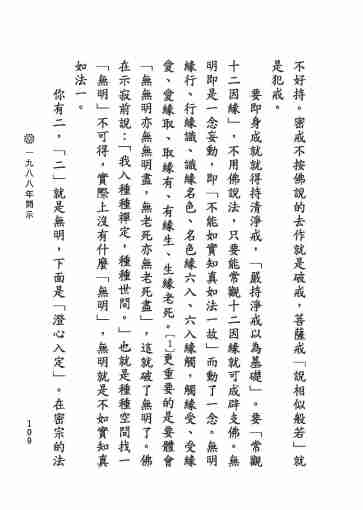 不好持。密戒不按佛說的去作就是破戒，菩薩戒「說相似般若」就
是犯戒。
要即身成就就得持清淨戒，「嚴持淨戒以為基礎」。要「常觀
十二因緣」，不用佛說法，只要能常觀十二因緣就可成辟支佛。無
明即是一念妄動，即「不能如實知真如法一故」而動了一念。無明
緣行、行緣識、識緣名色、名色緣六入、六入緣觸，觸緣受、受緣
愛、愛緣取、取緣有、有緣生、生緣老死。[1]更重要的是要體會
「無無明亦無無明盡，無老死亦無老死盡」，這就破了無明了。佛
在示寂前說：「我入種種禪定，種種世間。」也就是種種空間找一
「無明」不可得，實際上沒有什麼「無明」，無明就是不如實知真
如法一。
你有二，「二」就是無明，下面是「澄心入定」。在密宗的法
一九八八年開示
109